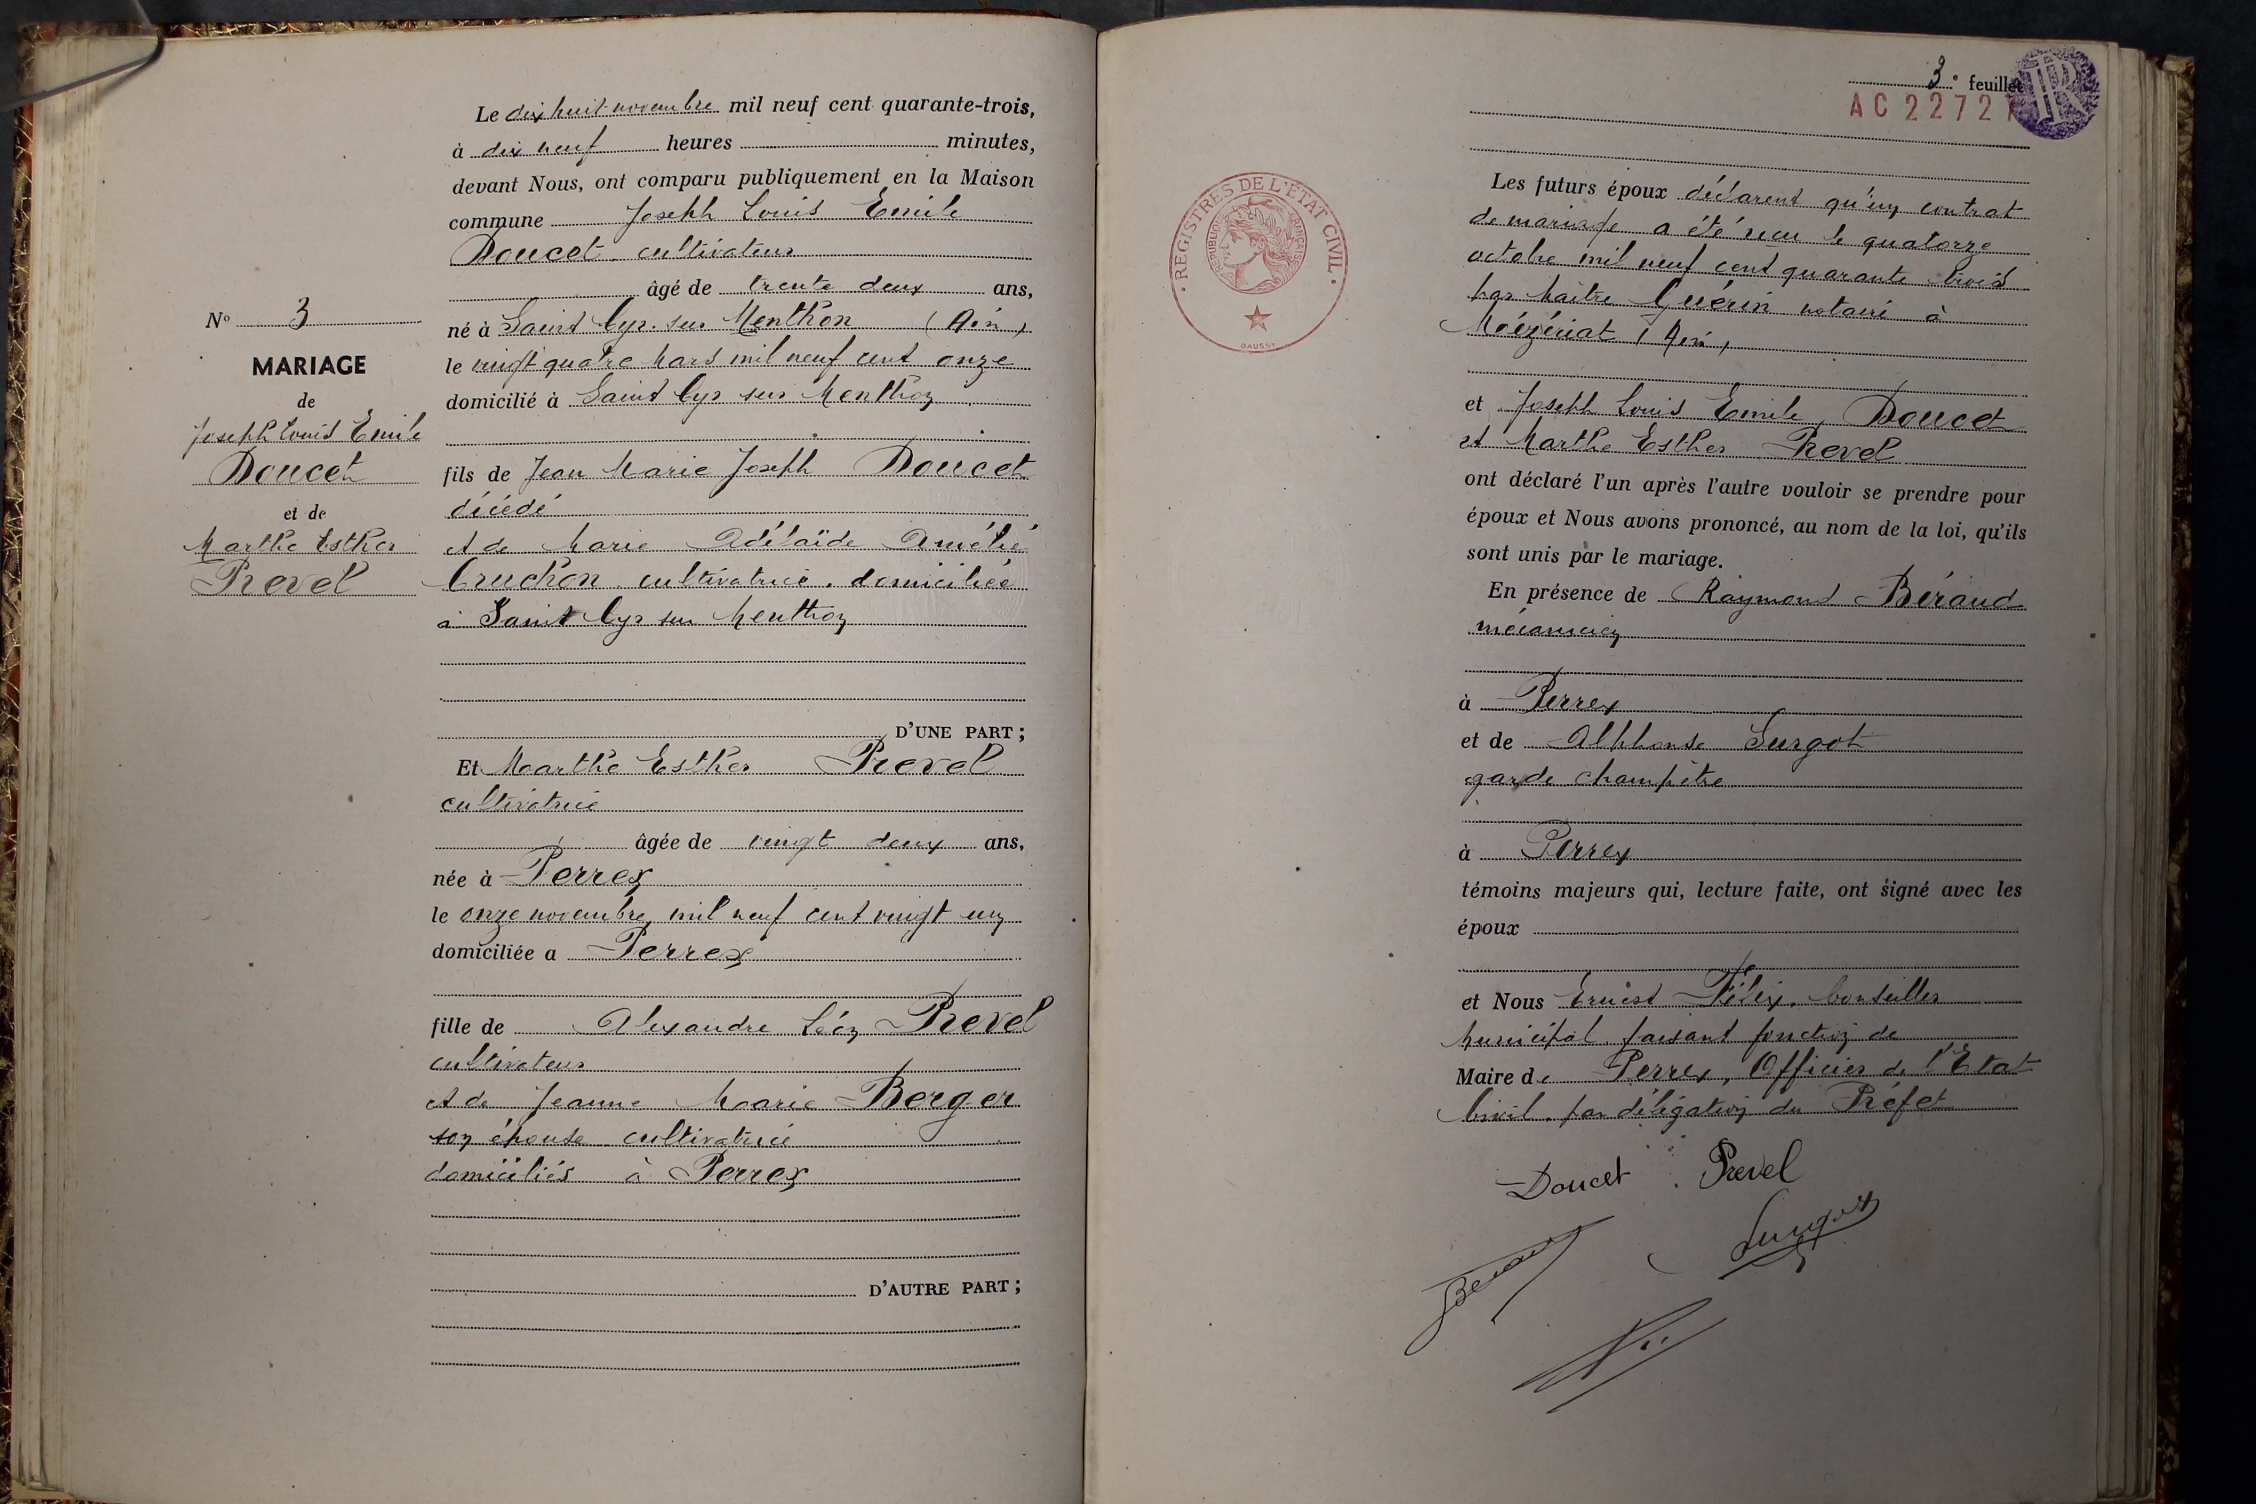 Le dix huit novembre mil neuf cent quarante-trois,
à dix neuf heures minutes,
devant Nous, ont comparu publiquement en la Maison
commune Joseph Louis Emile
Doucet cultivateur
âgé de trente deux ans,
né à Saint Cyr sur Menthon (Ain)
le vingt quatre Mars mil neuf cent onze
domicilié à Saint Cyr sur Menthon
fils de Jean Marie Joseph Doucet
décédé
et de Marie Adélaïde Amélie
Cruchon cultivatrice domiciliée
à Saint Cyr sur Menthon
D'UNE PART ;
Et Marthe Esther Prevel
cultivatrice
âgée de vingt deux ans,
née à Perrex
le onze novembre mil neuf cent vingt un
domiciliée a Perrex
fille de Alexandre Léon Prevel
cultivateur
et de Jeanne Marie Berger
son épouse cultivatrice
domiciliés à Perrex
D'AUTRE PART ;
N° 3
MARIAGE
de
Joseph Louis Emile
Doucet
et de
Marthe Esther
Prevel
3e feuillet
AC 22727
REGISTRES DE L'ÉTAT CIVIL
RÉPUBLIQUE FRANÇAISE
Les futurs époux déclarent qu'un contrat
de mariage a été reçu le quatorze
octobre mil neuf cent quarante trois
par Maître Guérin notaire à
Mézériat (Ain)
et Joseph Louis Emile Doucet
et Marthe Esther Prevel
ont déclaré l'un après l'autre vouloir se prendre pour
époux et Nous avons prononcé, au nom de la loi, qu'ils
sont unis par le mariage.
En présence de Raymond Béraud
mécanicien
à Perrex
et de Alphonse Surgot
garde champêtre
à Perrex
témoins majeurs qui, lecture faite, ont signé avec les
époux
et Nous Ernest Félix, Conseiller
Municipal faisant fonction de
Maire de Perrex, Officier de l'Etat
Civil par délégation du Préfet
Doucet Prevel
Surgot
Beraud